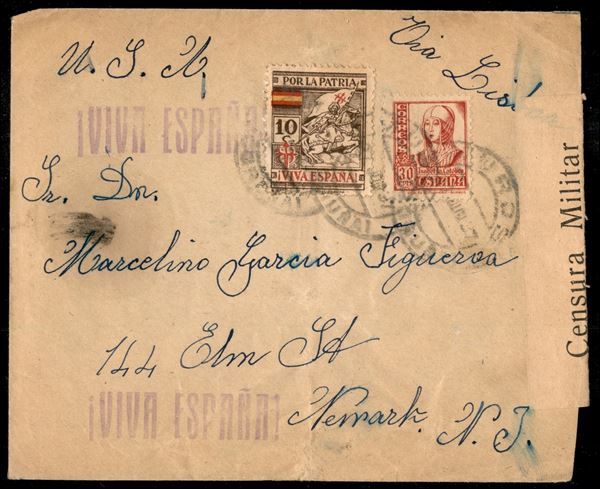 Via Lis
U. S. A.
¡VIVA ESPAÑA!
POR LA PATRIA
10
¡VIVA ESPAÑA!
CORREOS
30
ESPAÑA
Sr. Dn.
Marcelino Garcia Figueroa
144 Elm St
¡VIVA ESPAÑA!
Newark. N. J.
Censura Militar